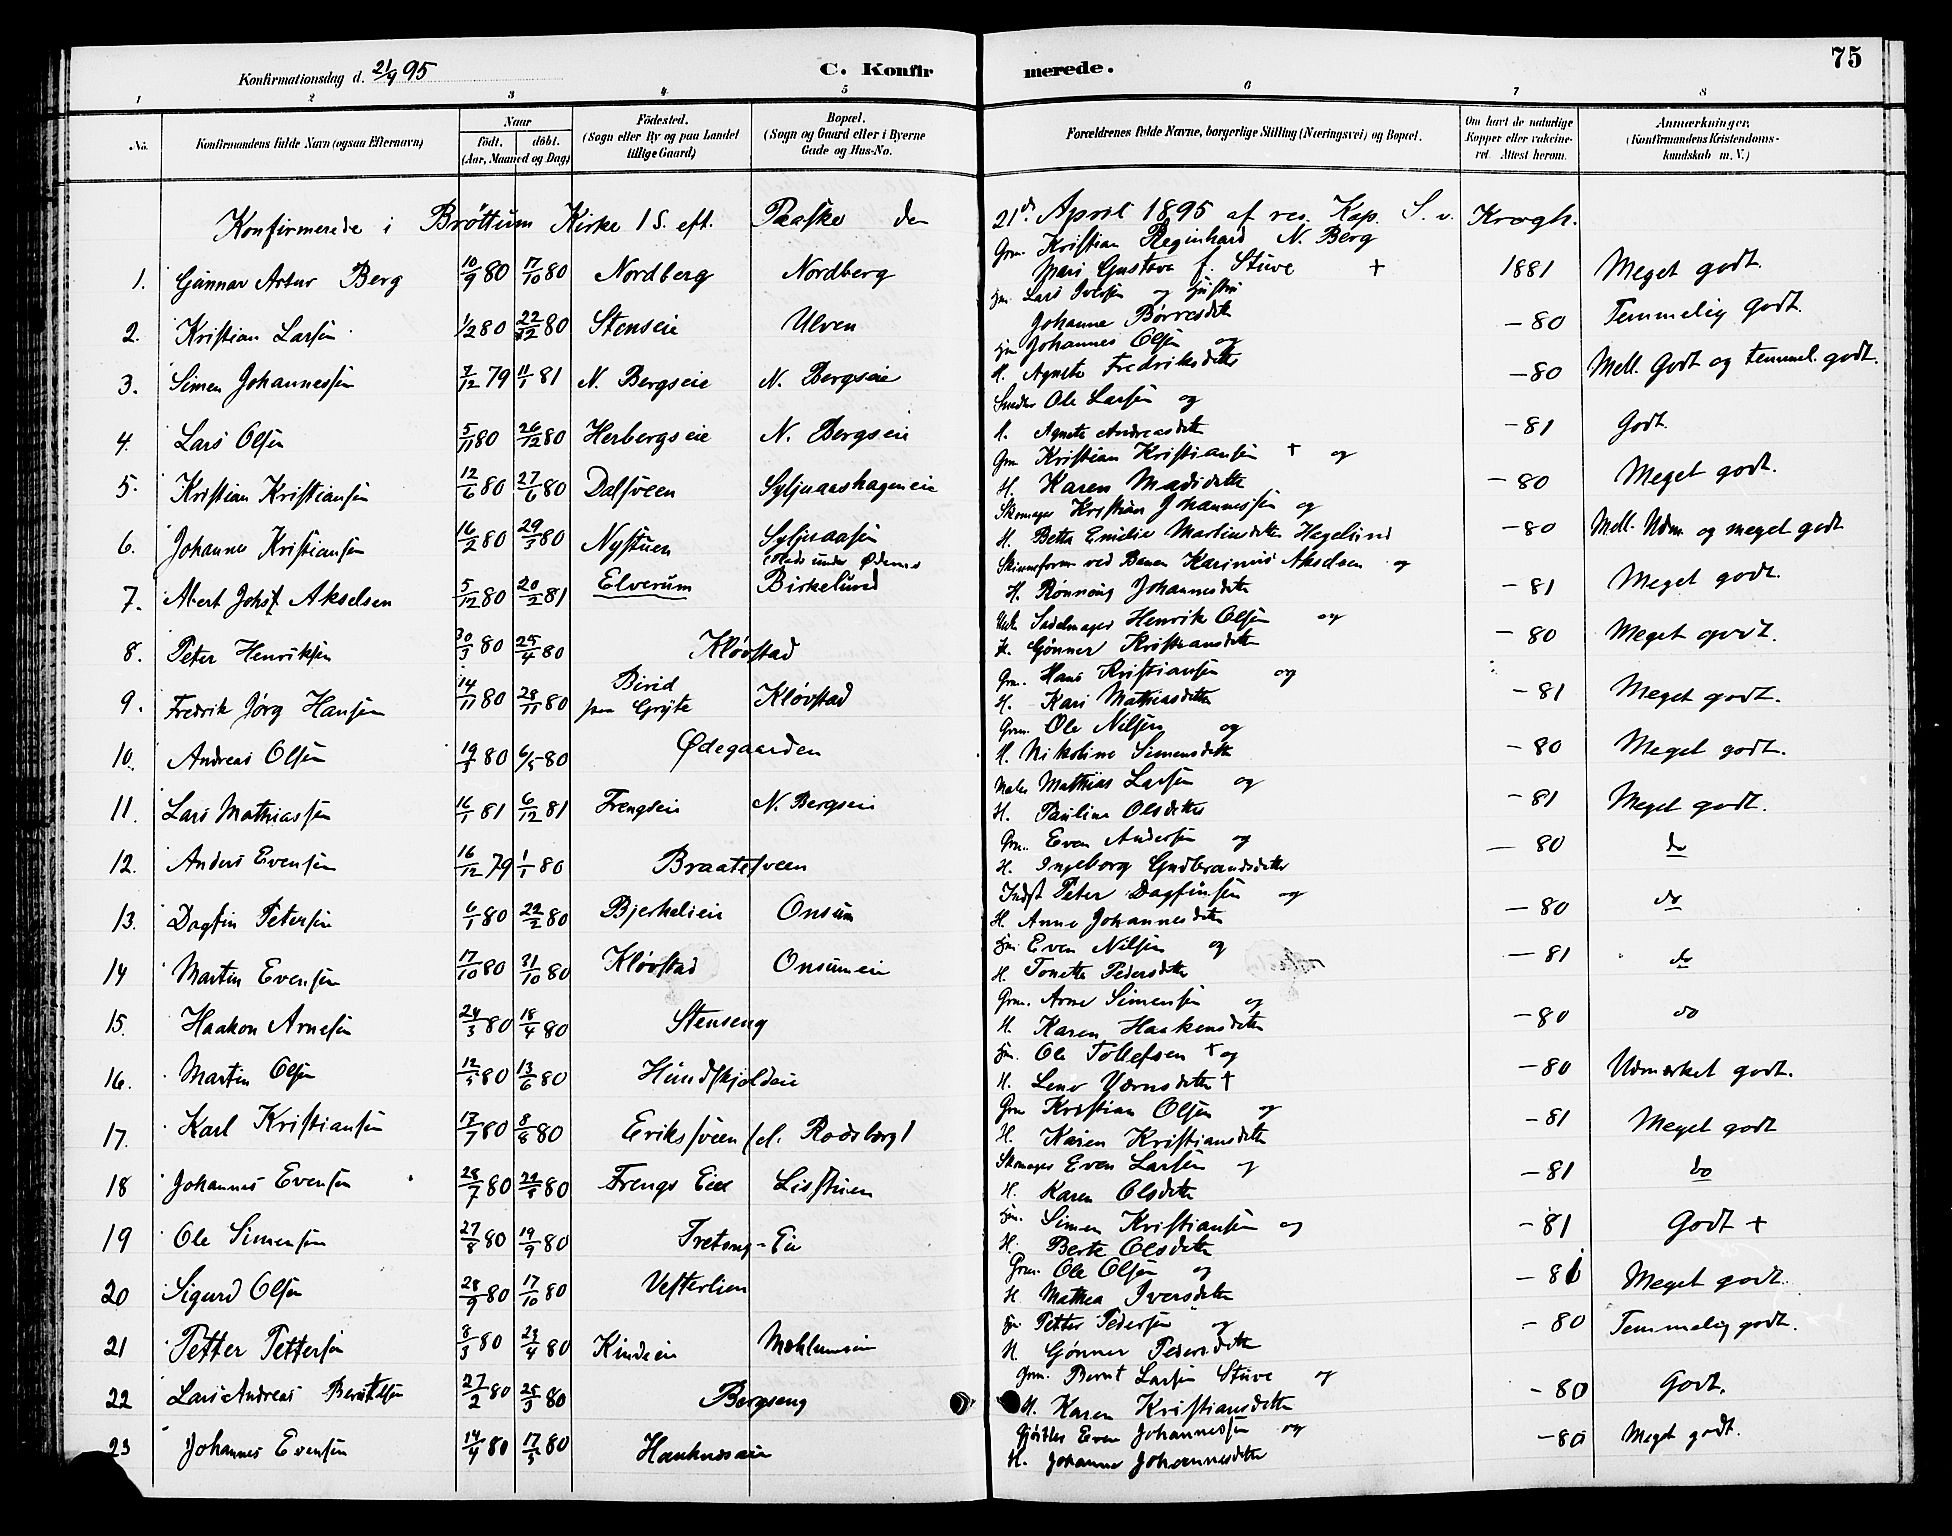 Konfirmationsdag d. 21/4 95
C. Konfir merede. 75
1 2 3 4 5 6 7 8
No. Konfirmandens fulde Navn (ogsaa Efternavn) Naar født. døbt. (Aar, Maaned og Dag) Födested. (Sogn eller By og paa Landet tillige Gaard) Bopæl. (Sogn og Gaard eller i Byerne Gade og Hus-No. Forældrenes fulde Navne, borgerlige Stilling (Næringsvei) og Bopæl. Om havt de naturlige Kopper eller vakcineret. Attest herom. Anmærkninger. (Konfirmandens Kristendomskundskab m. V.)
Konfirmerede i Brøttum Kirke 1 S. eft. Paaske den 21de April 1895 af res. Kap. S. v. Krogh.
Grm. Kristian Reginhard N. Berg
1. Gunnar Artur Berg 10/9 80 17/10 80 Nordberg Nordberg Mari Gustava f. Stuve + 1881 Meget godt.
Lars Iversen og Hustru
2. Kristian Larsen 1/2 80 22/2 80 Stenseie Ulven Johanne Børresdatter - 80 Temmelig godt.
Johannes Olsen og
3. Simen Johannessen 3/12 79 11/1 81 N. Bergseie N. Bergseie H. Agnete Fredriksdatter - 80 Mell. Godt og temmel. godt.
Snedker Ole Larsen og
4. Lars Olsen 5/11 80 26/12 80 Herbergseie N. Bergseie H. Agnete Andreasdatter - 81 Godt.
Grm Kristian Kristiansen + og
5. Kristian Kristiansen 12/6 80 27/6 80 Dalsveen Syljuaashageneie H. Karen Madsdatter - 80 Meget godt.
Skomager Kristian Johannessen og
6. Johannes Kristiansen 16/2 80 29/3 80 Nystuen Syljuaasen H. Bette Emilie Martinsdatter Hagelund - 80 Mell. Udm. og meget godt
Plads under
Skinneform. ved Banen Karinius Akselsen og
7. Albert Johs. Akselsen 5/12 80 20/2 81 Elverum Birkelund H. Rønnaug Johannesdatter - 81 Meget godt.
Sadelmager Henrik Olsen og
8. Peter Henriksen 30/3 80 25/4 80 Kløvstad H. Gønner Kristiansdatter - 80 Meget godt.
Grm. Hans Kristiansen og
9. Fredrik Jørg Hansen 14/11 80 28/11 80 Birid paa Grøte Kløvstad H. Kari Mathiasdatter - 81 Meget godt.
Grm. Ole Nilsen og
10. Andreas Olsen 19/3 80 6/5 80 Ødegaarden H. Nikoline Simensdatter - 80 Meget godt.
Maler Mathias Larsen og
11. Lars Mathiassen 16/1 81 6/12 81 Frengseie N. Bergseie H. Pauline Olsdatter - 81 Meget godt.
Grm. Even Andersen og
12. Anders Evensen 16/12 79 1/1 80 Braatesveen H. Ingeborg Gudbrandsdatter - 80 do
Indst Peter Dagfinsen og
13. Dagfin Petersen 6/1 80 22/2 80 Bjerkelieie Onsum H. Anne Johannesdatter - 80 do
Even Nilsen og
14 Martin Evensen 17/10 80 31/10 80 Kløvstad Onsumeie H. Tonette Pedersdatter - 81 do
Grm. Arne Simensen og
15. Haakon Arnesen 24/3 80 18/4 80 Stenseng H. Karen Haakensdatter - 80 do
Ole Tollefsen + og
16. Martin Olsen 12/5 80 13/6 80 Hundskjoldeie H. Lene + - 80 Udmærket godt.
Grm Kristian Olsen og
17. Karl Kristiansen 17/7 80 8/8 80 Eriksveen (el. Rodsberg) H. Karen Kristiansdatter - 81 Meget godt
Skomager Even Larsen og
18 Johannes Evensen 28/7 80 22/8 80 Frengs Eie Lisstuen H. Karen Olsdatter - 81 do
Simen Kristiansen og
19 Ole Simensen 27/8 80 19/9 80 Treteng-Eie H. Berte Olsdatter - 81 Godt +
Grm. Ole Olsen og
20 Sigurd Olsen 28/9 80 17/10 80 Vesterlien H. Mathea Iversdatter - 81 Meget godt.
Petter Pedersen og
21 Petter Pettersen 8/3 80 23/4 80 Kindeie Mæhlumseie H. Gønner Pedersdatter - 80 Temmelig godt.
Grm. Bernt Larsen Stuve og
22 Lars Andreas Berntsen 27/2 80 25/3 80 Bergseng H. Karen Kristiansdatter - 80 Godt.
Gjørtler Even Johannessen og
23 Johannes Evensen 14/4 80 17/5 80 H. Johanne Johannesdatter - 80 Meget godt.